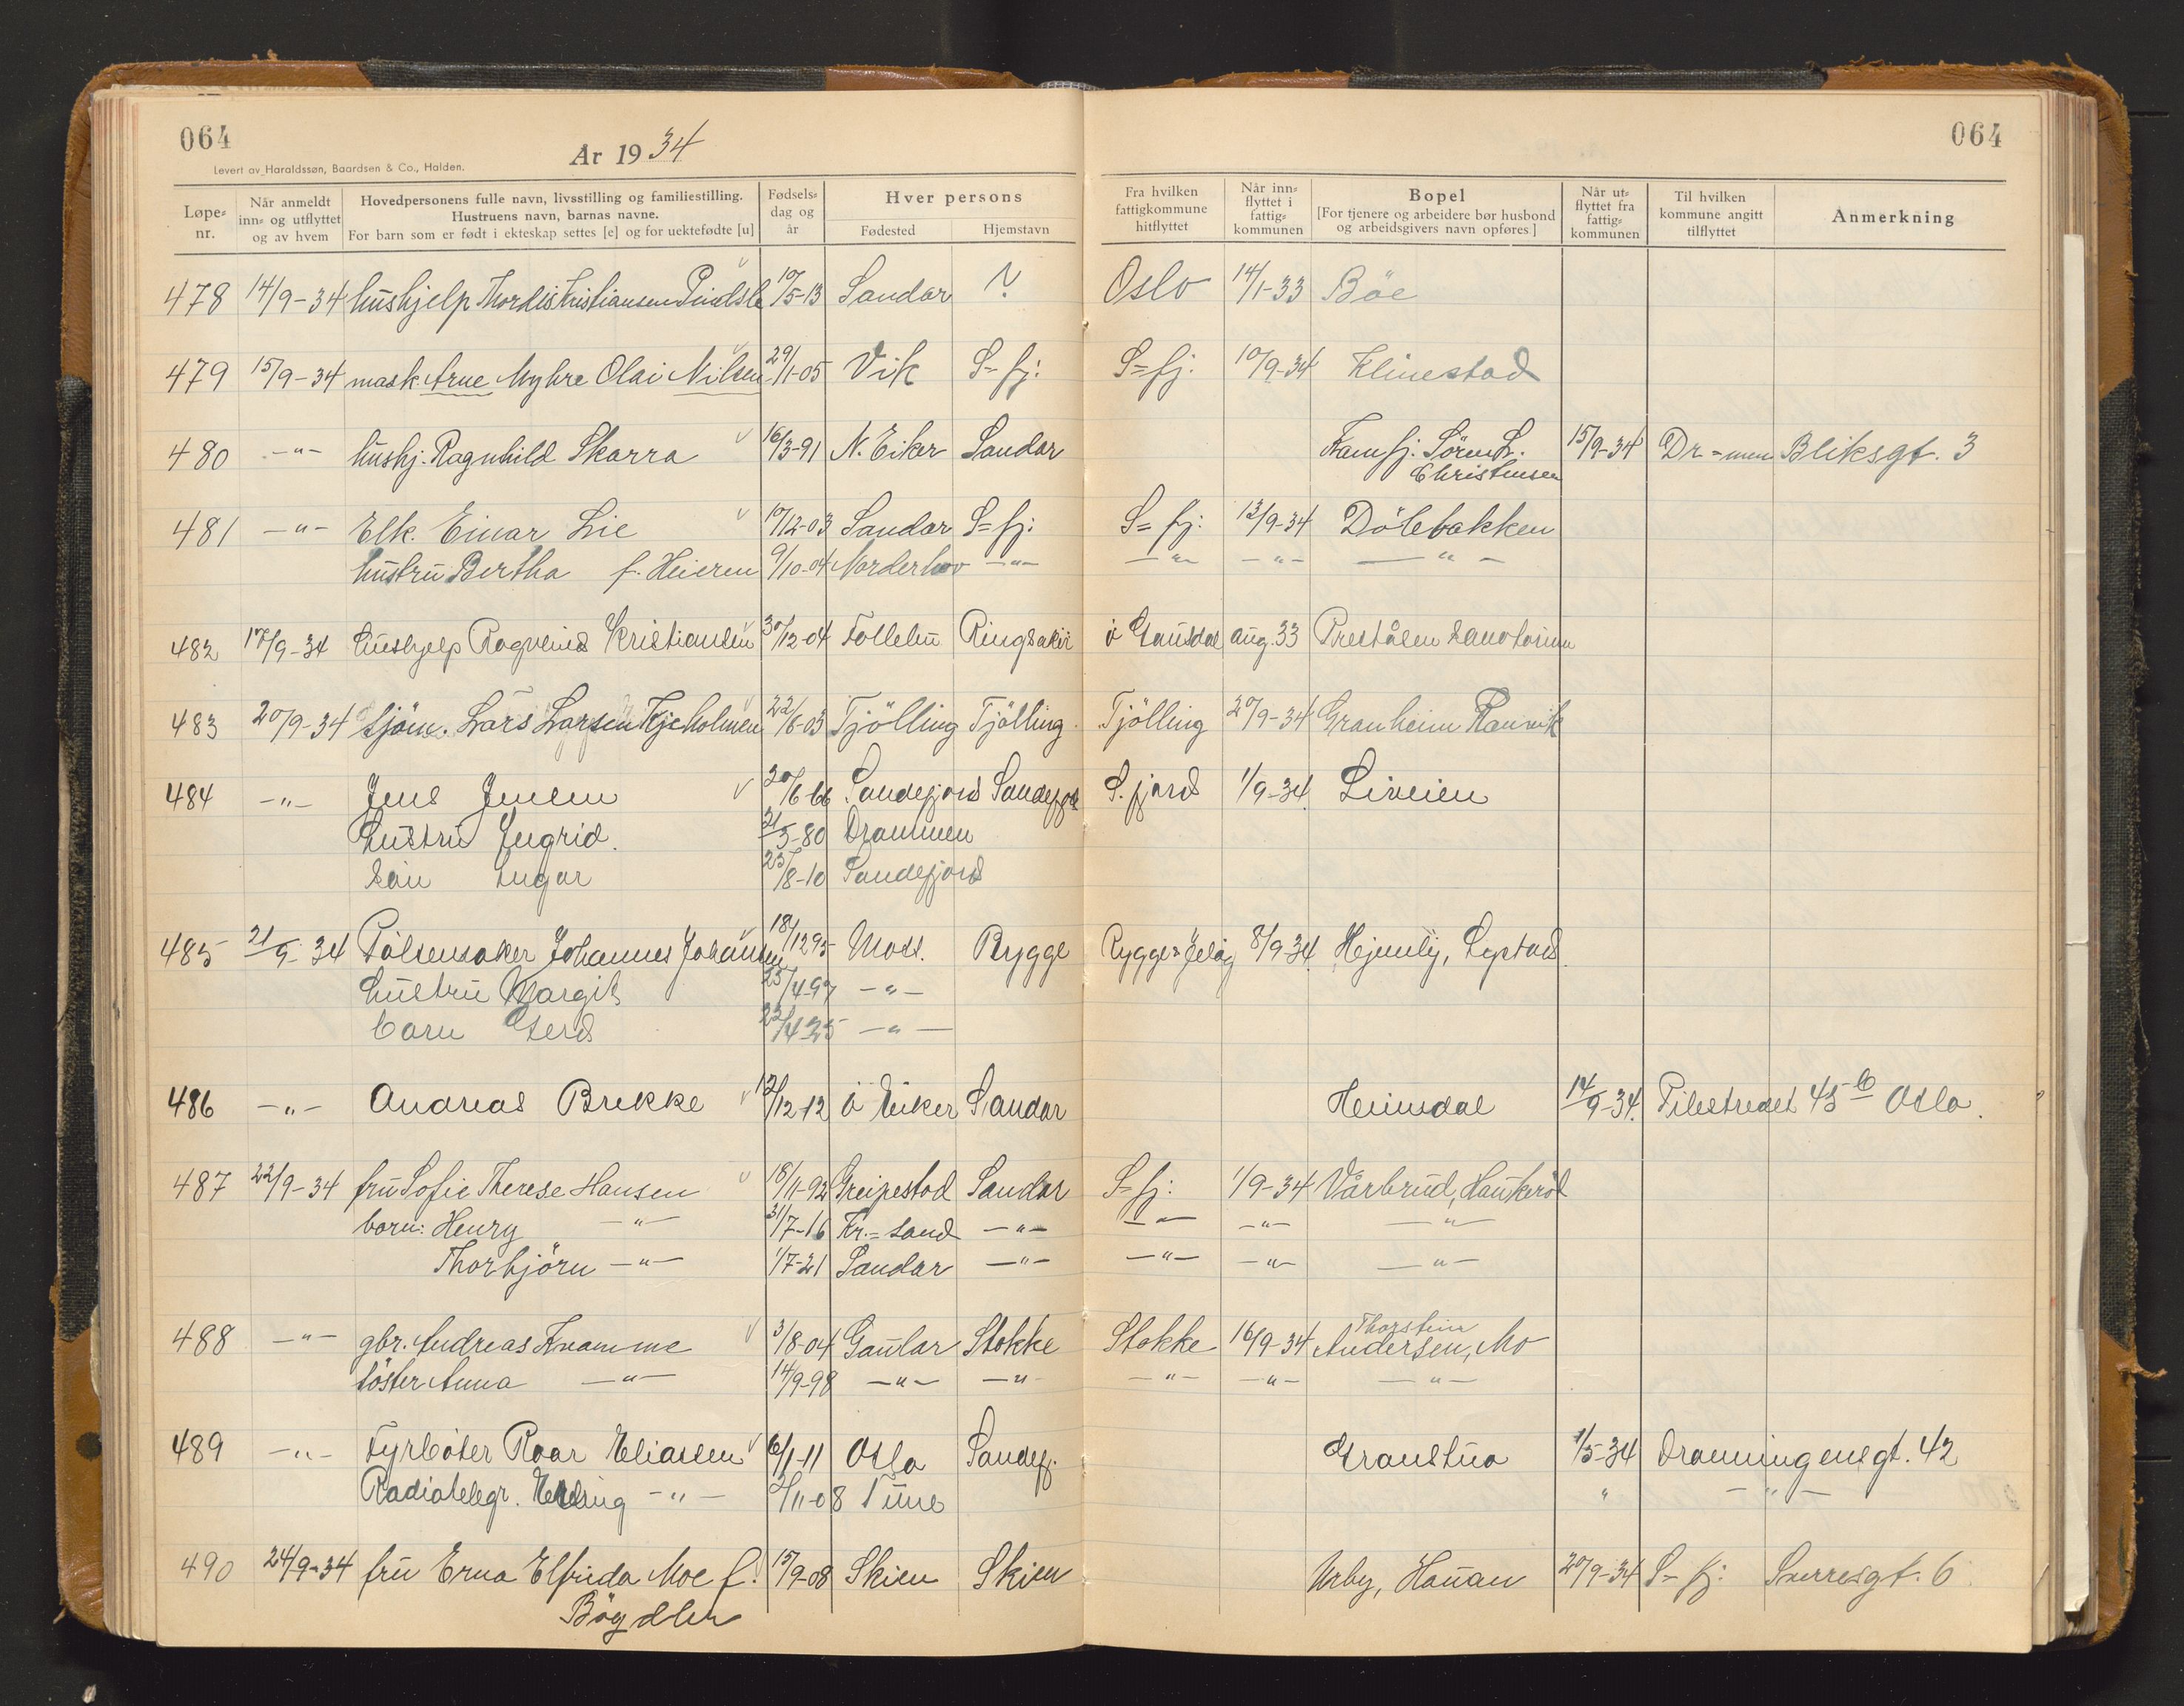 064
064
Levert av Haraldssøn, Baardsen & Co., Halden.
År 1934
Løpe-nr. Når anmeldt inn- og utflyttet og av hvem Hovedpersonens fulle navn, livsstilling og familiestilling. Hustruens navn, barnas navne. For barn som er født i ekteskap settes [e] og for uektefødte [u] Fødsels-dag og år Hver persons Fødested Hjemstavn Fra hvilken fattigkommune hitflyttet Når inn-flyttet i fattig-kommunen Bopel [For tjenere og arbeidere bør husbond og arbeidsgivers navn opføres] Når ut-flyttet fra fattig-kommunen Til hvilken kommune angitt tilflyttet Anmerkning
478 14/9-34 hushjelp Thordis Kristiansen 10/5-13 Sandar ? Oslo 14/1-33 Böe
479 15/9-34 mask. Arne Myhre Olai Nilsen 29/1-05 Vik S=fj: S=fj. 10/9-34 Klinestad
480 -"- hushj. Ragnhild Skarra 16/3-91 N. Eiker Sandar Framfj. Sören L. Christensen 15/9-34 Dr=men Bliksgt. 3
481 -"- Elk. Einar Lie 17/12-03 Sandar S=fj: S=fj: 13/9-34 Dölebakken
hustru Bertha f. Heieren 9/10-04 Norderhov -"- -"- -"- -"-
482 17/9-34 hushjelp Ragnhild Kristiansen 30/12-04 Follebu Ringsaker ö Gausdal aug. 33 Preståsen Sanatorium
483 20/9-34 Sjöm. Lars Larsen Kjeholmen 22/6-03 Tjölling Tjölling Tjölling 20/9-34 Granheim Ranvik
484 -"- Jens Jensen 20/6-66 Sandefjord Sandefjord S.fjord 1/9-34 Liveien
hustru Ingrid. 21/3-80 Drammen
sön Ingar 23/8-10 Sandefjord
485 21/9-34 Pölsemaker Johannes Johansen 18/12 95 Moss. Rygge Rygge Jelöy 8/9-34 Hejmly, Lystad
hustru Margit 25/4-97 -"-
barn Gerd 22/4 25 -"-
486 -"- Andreas Brekke 12/12-12 ö Eiker Sandar Heimdal 14/9-34. Pilestredet 45 b Oslo.
487 22/9-34 fru Sofie Therese Hansen 18/11-92 Greipestad Sandar S=fj: 1/9-34 Vårbrud, Haukeröd
barn: Henry -"- 31/7-16 Kr.=sand -"- -"- -"- -"-
Thorbjörn -"- 1/7-21 Sandar -"- -"- -"- -"-
488 -"- gbr. Andreas Kvamme 3/8-04 Gaular Stokke Stokke 16/9-34 Thorstein Andersen, Mo
söster Anna -"- 14/9-98 -"- -"- -"- -"- -"-
489 -"- Fyrböter Roar Eliassen 6/1-11 Oslo Sandefj. Granstua 1/5-34 Dronningensgt. 42
Radiotelegr. Erling -"- 2/11-08 Tune " -"-
490 24/9-34 fru Erna Elfrida Moe f. 15/9-08 Skien Skien Urby, Hauan 20/9-34 S=fj: Sverresgt. 6
Bögdler